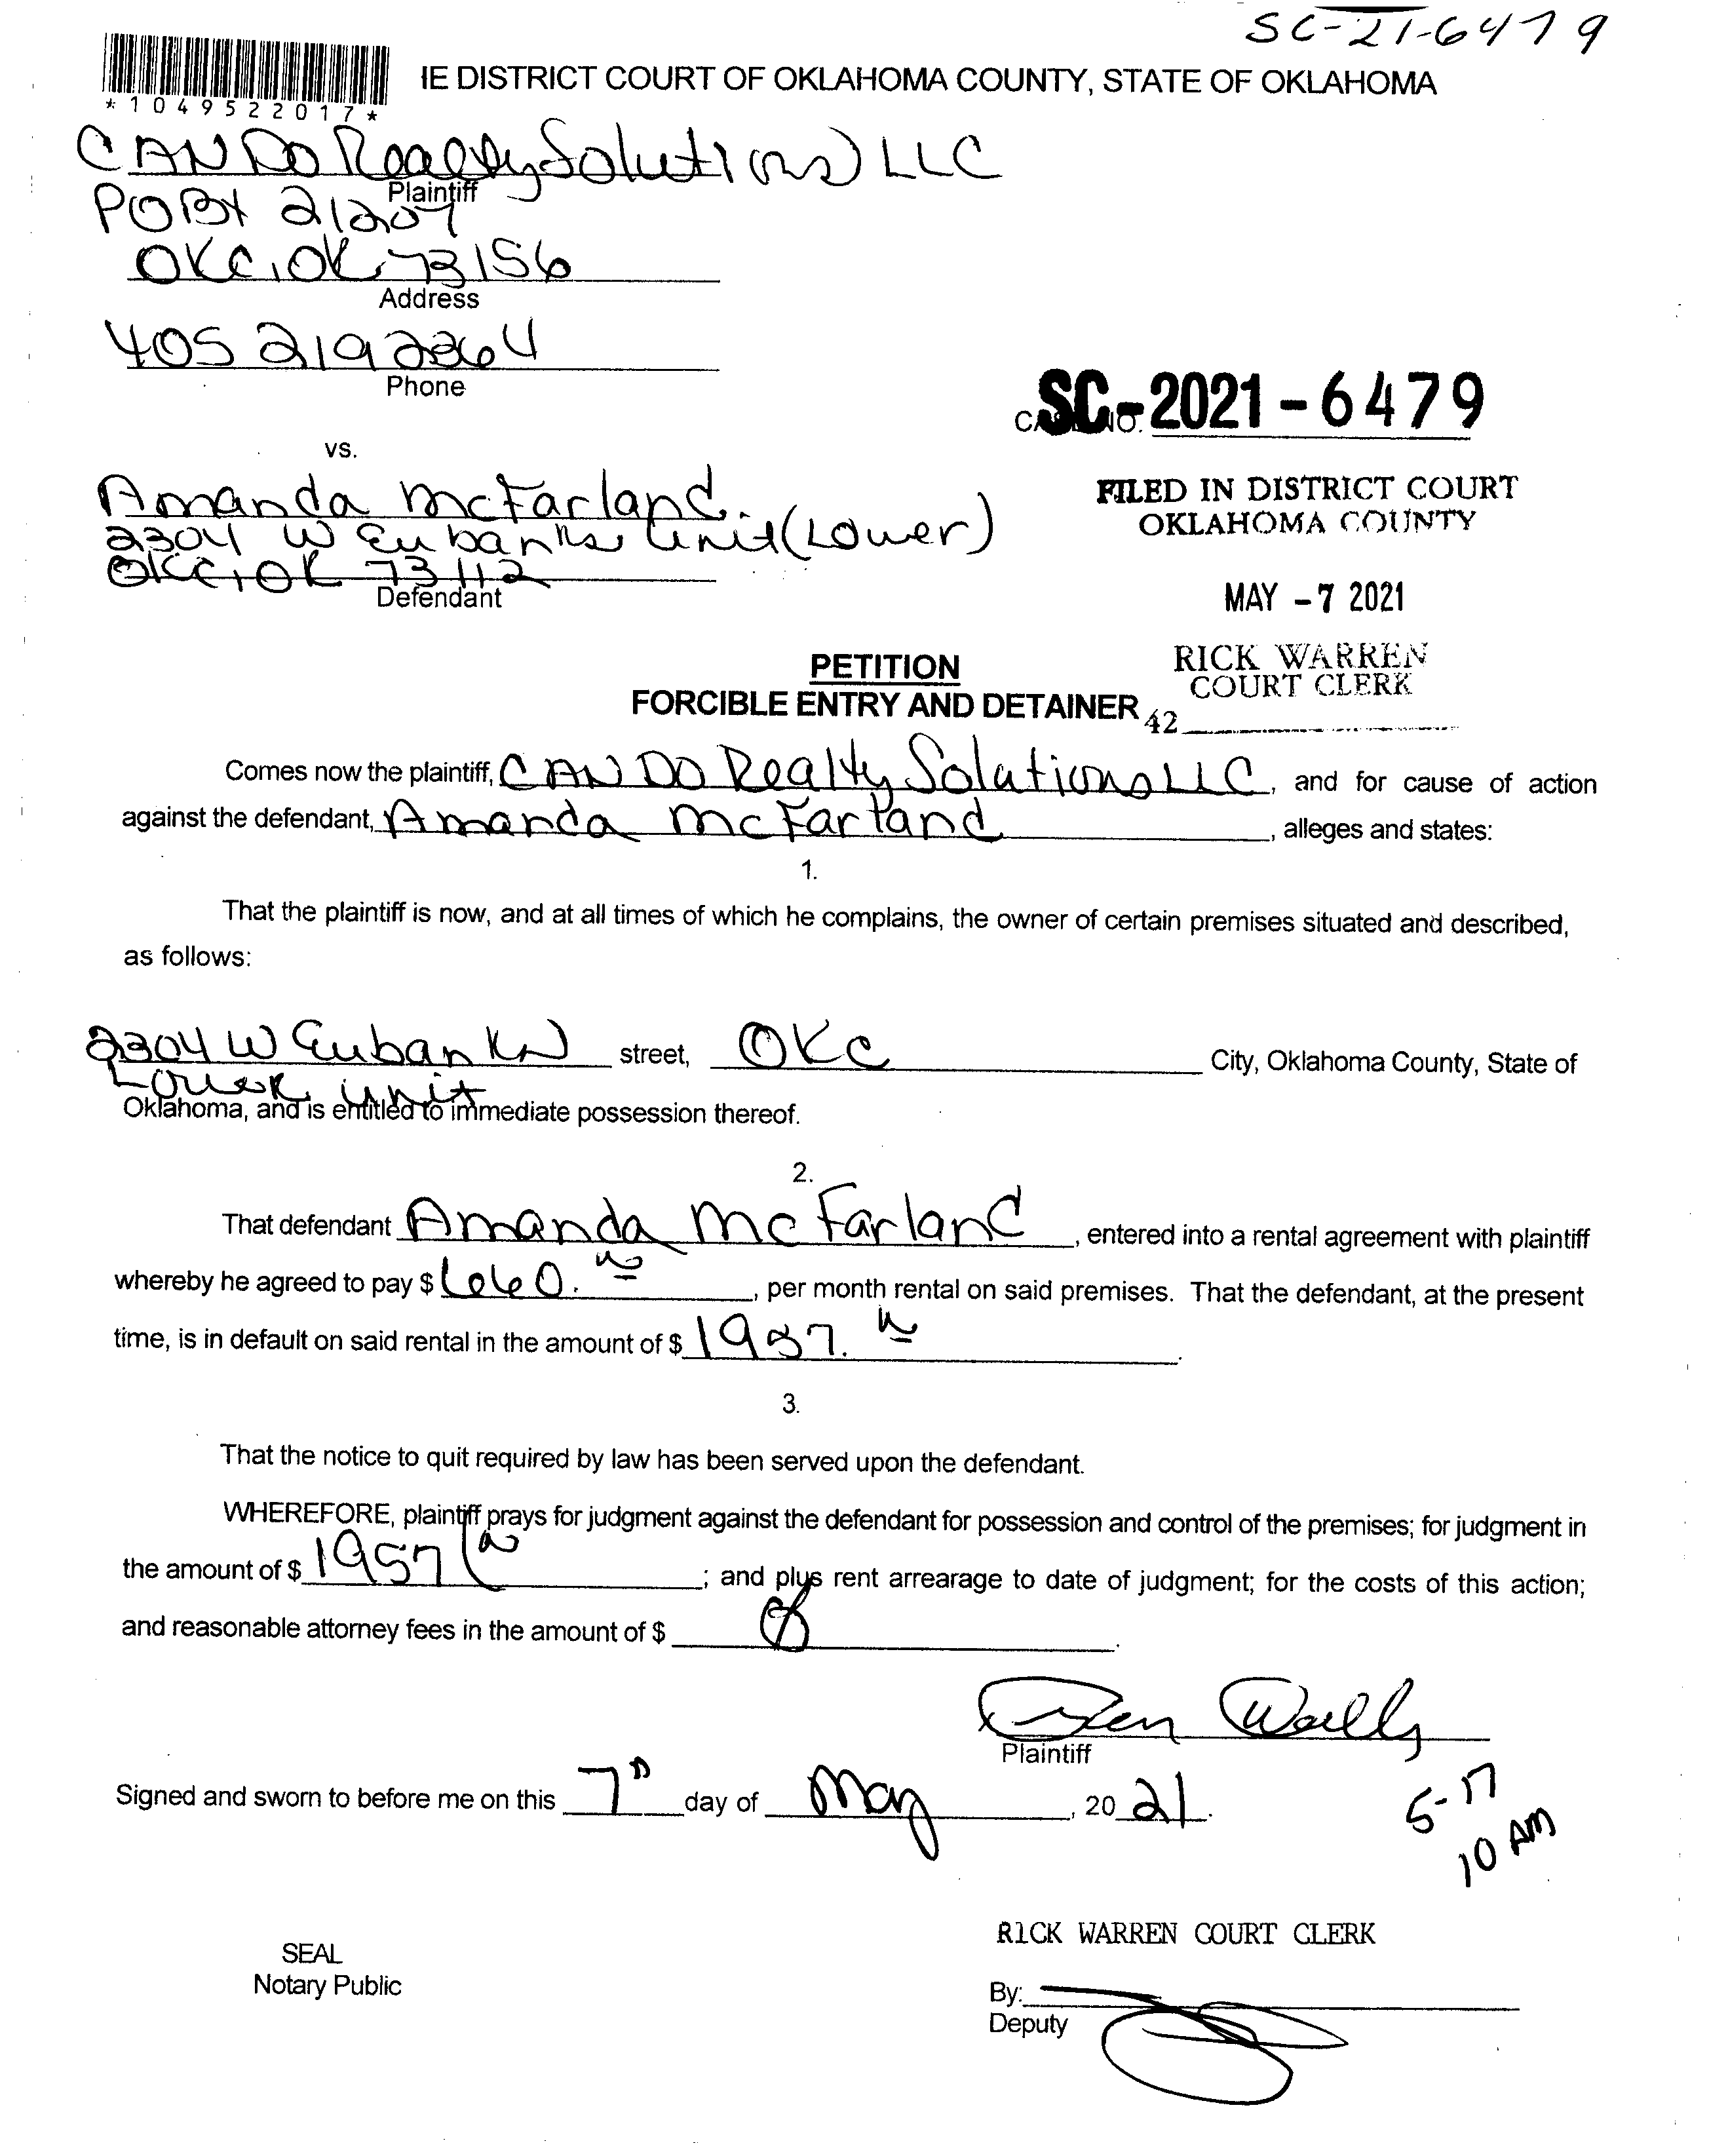 SC-21-6479
IE DISTRICT COURT OF OKLAHOMA COUNTY, STATE OF OKLAHOMA
*1049522017*
CAN DO Realty Solutions LLC
Plaintiff
PO BX 21207
OKC, OK 73156
Address
405 219 2264
Phone
SC-2021-6479
vs.
Amanda McFarland
2304 W Eubanks Unit (Lower)
OKC, OK 73112
Defendant
FILED IN DISTRICT COURT
OKLAHOMA COUNTY
MAY -7 2021
RICK WARREN
COURT CLERK
42
PETITION
FORCIBLE ENTRY AND DETAINER
Comes now the plaintiff, CAN DO Realty Solutions LLC, and for cause of action
against the defendant, Amanda McFarland, alleges and states:
1.
That the plaintiff is now, and at all times of which he complains, the owner of certain premises situated and described,
as follows:
2304 W Eubanks street, OKC City, Oklahoma County, State of
Lower unit
Oklahoma, and is entitled to immediate possession thereof.
2.
That defendant Amanda McFarland, entered into a rental agreement with plaintiff
whereby he agreed to pay $ 660. , per month rental on said premises. That the defendant, at the present
time, is in default on said rental in the amount of $ .
3.
That the notice to quit required by law has been served upon the defendant.
WHEREFORE, plaintiff prays for judgment against the defendant for possession and control of the premises; for judgment in
the amount of $ 1957 ; and plus rent arrearage to date of judgment; for the costs of this action;
and reasonable attorney fees in the amount of $ .
Plaintiff
Signed and sworn to before me on this 7th day of May, 2021.
5-17
10 AM
RICK WARREN COURT CLERK
SEAL
Notary Public
By:
Deputy